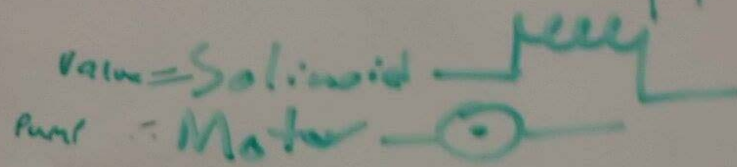 Value = Solinoid
Pump = Motor